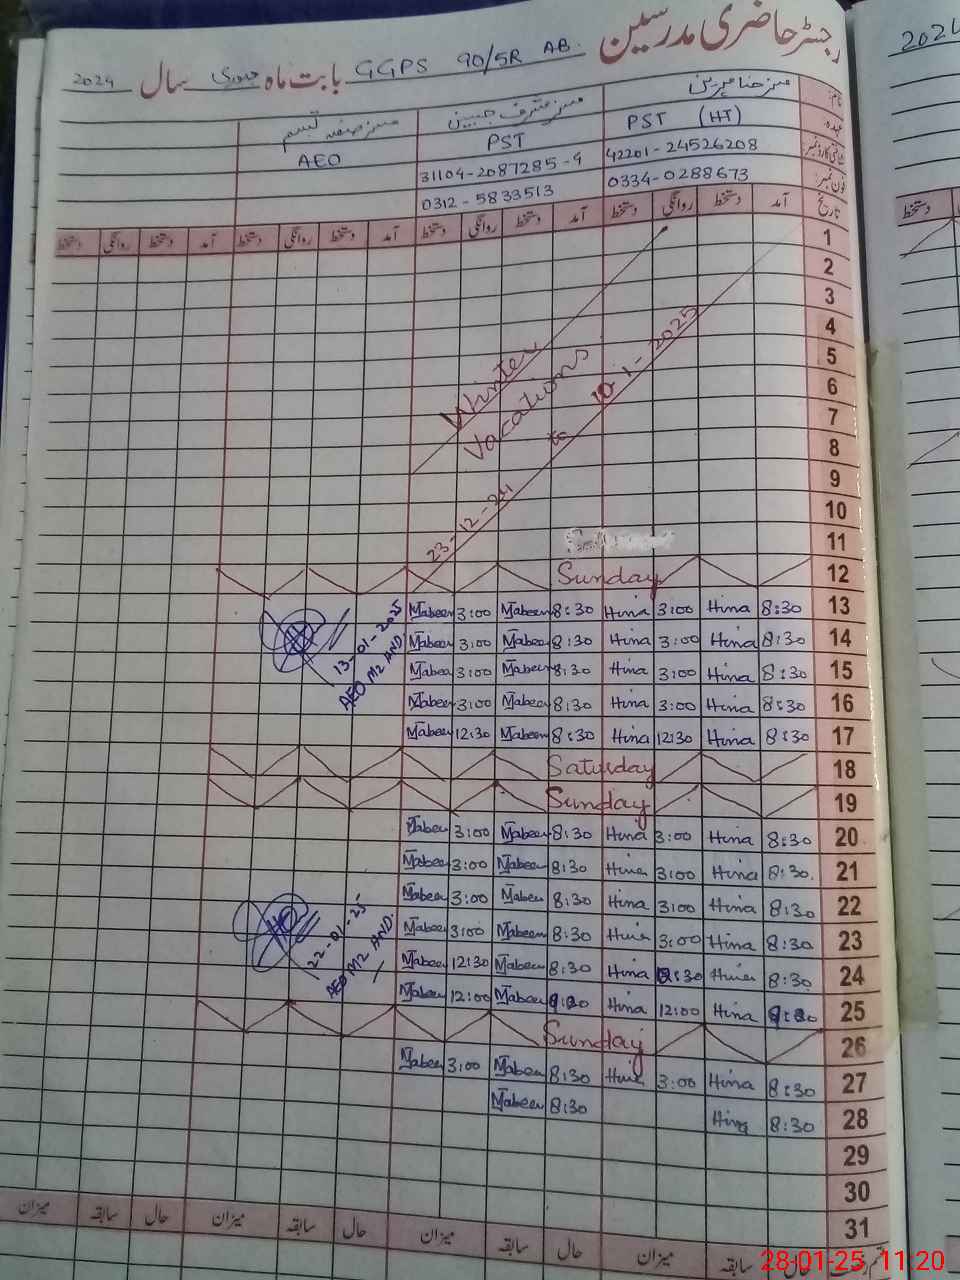 رجسٹر حاضری مدرسین GGPS 90/5R AB. بابت ماہ جنوری سال 2024
2024
نام:
عہدہ: PST (HT) PST AEO
شناختی کارڈ نمبر 42201-24526208 31104-2087285-9
فون نمبر: 0334-0288673 0312-5833513
تاریخ آمد دستخط روانگی دستخط آمد دستخط روانگی دستخط آمد دستخط روانگی دستخط آمد دستخط روانگی دستخط
دستخط
1
2
3
4
5
6
7
8
9
10
11
Winter
Vacations
23-12-24 to 10-1-2025
12 Sunday
13 8:30 Hina 3:00 Hina 8:30 Mabeen 3:00 Mabeen
14 8:30 Hina 3:00 Hina 8:30 Mabeen 3:00 Mabeen
15 8:30 Hina 3:00 Hina 8:30 Mabeen 3:00 Mabeen
16 8:30 Hina 3:00 Hina 8:30 Mabeen 3:00 Mabeen
17 8:30 Hina 12:30 Hina 8:30 Mabeen 12:30 Mabeen
13-01-2025
AEO M2 AND.
18 Saturday
19 Sunday
20 8:30 Hina 3:00 Hina 8:30 Mabeen 3:00 Mabeen
21 8:30 Hina 3:00 Hina 8:30 Mabeen 3:00 Mabeen
22 8:30 Hina 3:00 Hina 8:30 Mabeen 3:00 Mabeen
23 8:30 Hina 3:00 Hina 8:30 Mabeen 3:00 Mabeen
24 8:30 Hina 12:30 Hina 8:30 Mabeen 12:30 Mabeen
25 Hina 12:00 Hina Mabeen 12:00 Mabeen
22-01-25
AEO M2 AND.
26 Sunday
27 8:30 Hina 3:00 Hina 8:30 Mabeen 3:00 Mabeen
28 8:30 Hina 8:30 Mabeen
29
30
31
حال سابقہ میزان حال سابقہ میزان حال سابقہ میزان حال سابقہ میزان
28-01-25, 11:20